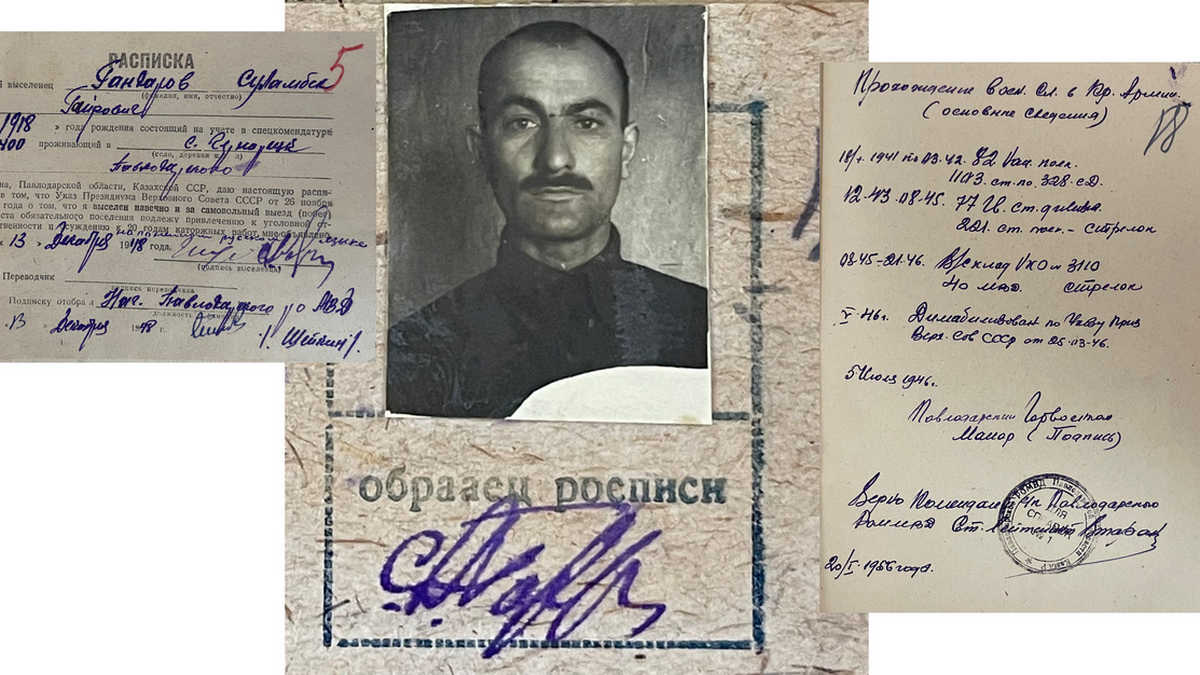 РАСПИСКА
5
выселенец Гандаров Суламбек
(фамилия, имя, отчество)
Гаирович
1918 » года рождения состоящий на учете в спецкомендатуре
проживающий в с.
(село, деревня
Павлодарского
на, Павлодарской области, Казахской ССР, даю настоящую распи-
в том, что Указ Президиума Верховного Совета СССР от 26 ноября
года о том, что я выселен навечно и за самовольный выезд (побег)
ста обязательного поселения подлежу привлечению к уголовной от-
ветственности и осуждению к 20 годам каторжных работ, мне объявлено
на понятном русском языке
13 » Декабря 1948 года.
(подпись выселенца)
Переводчик
(подпись переводчика)
Подписку отобрал Нач. Павлодарского РО МВД
13 Декабря 1948 /. Шейкин/.
образец росписи
Прохождение воен. сл. в Кр. Армии.
(основные сведения)
18
1941 по 03.42. 82 Кав. полк.
1103. ст. по. 328. сД.
12.43 08.45. 77 Гв. ст. дивиз.
221. ст. полк. - стрелок
08.45-21.46. В/склад УХО № 3110
40 мяд. стрелок
V-46г. Димабилизован по Указу През
Верх. Сов СССР от 25.03-46.
5 Июля 1946г.
Павлодарский Горвоенком
Майор (Подпись)
Верно Комендант с/к Павлодарского
Ст. Лейтенант
20/I-1956 года.